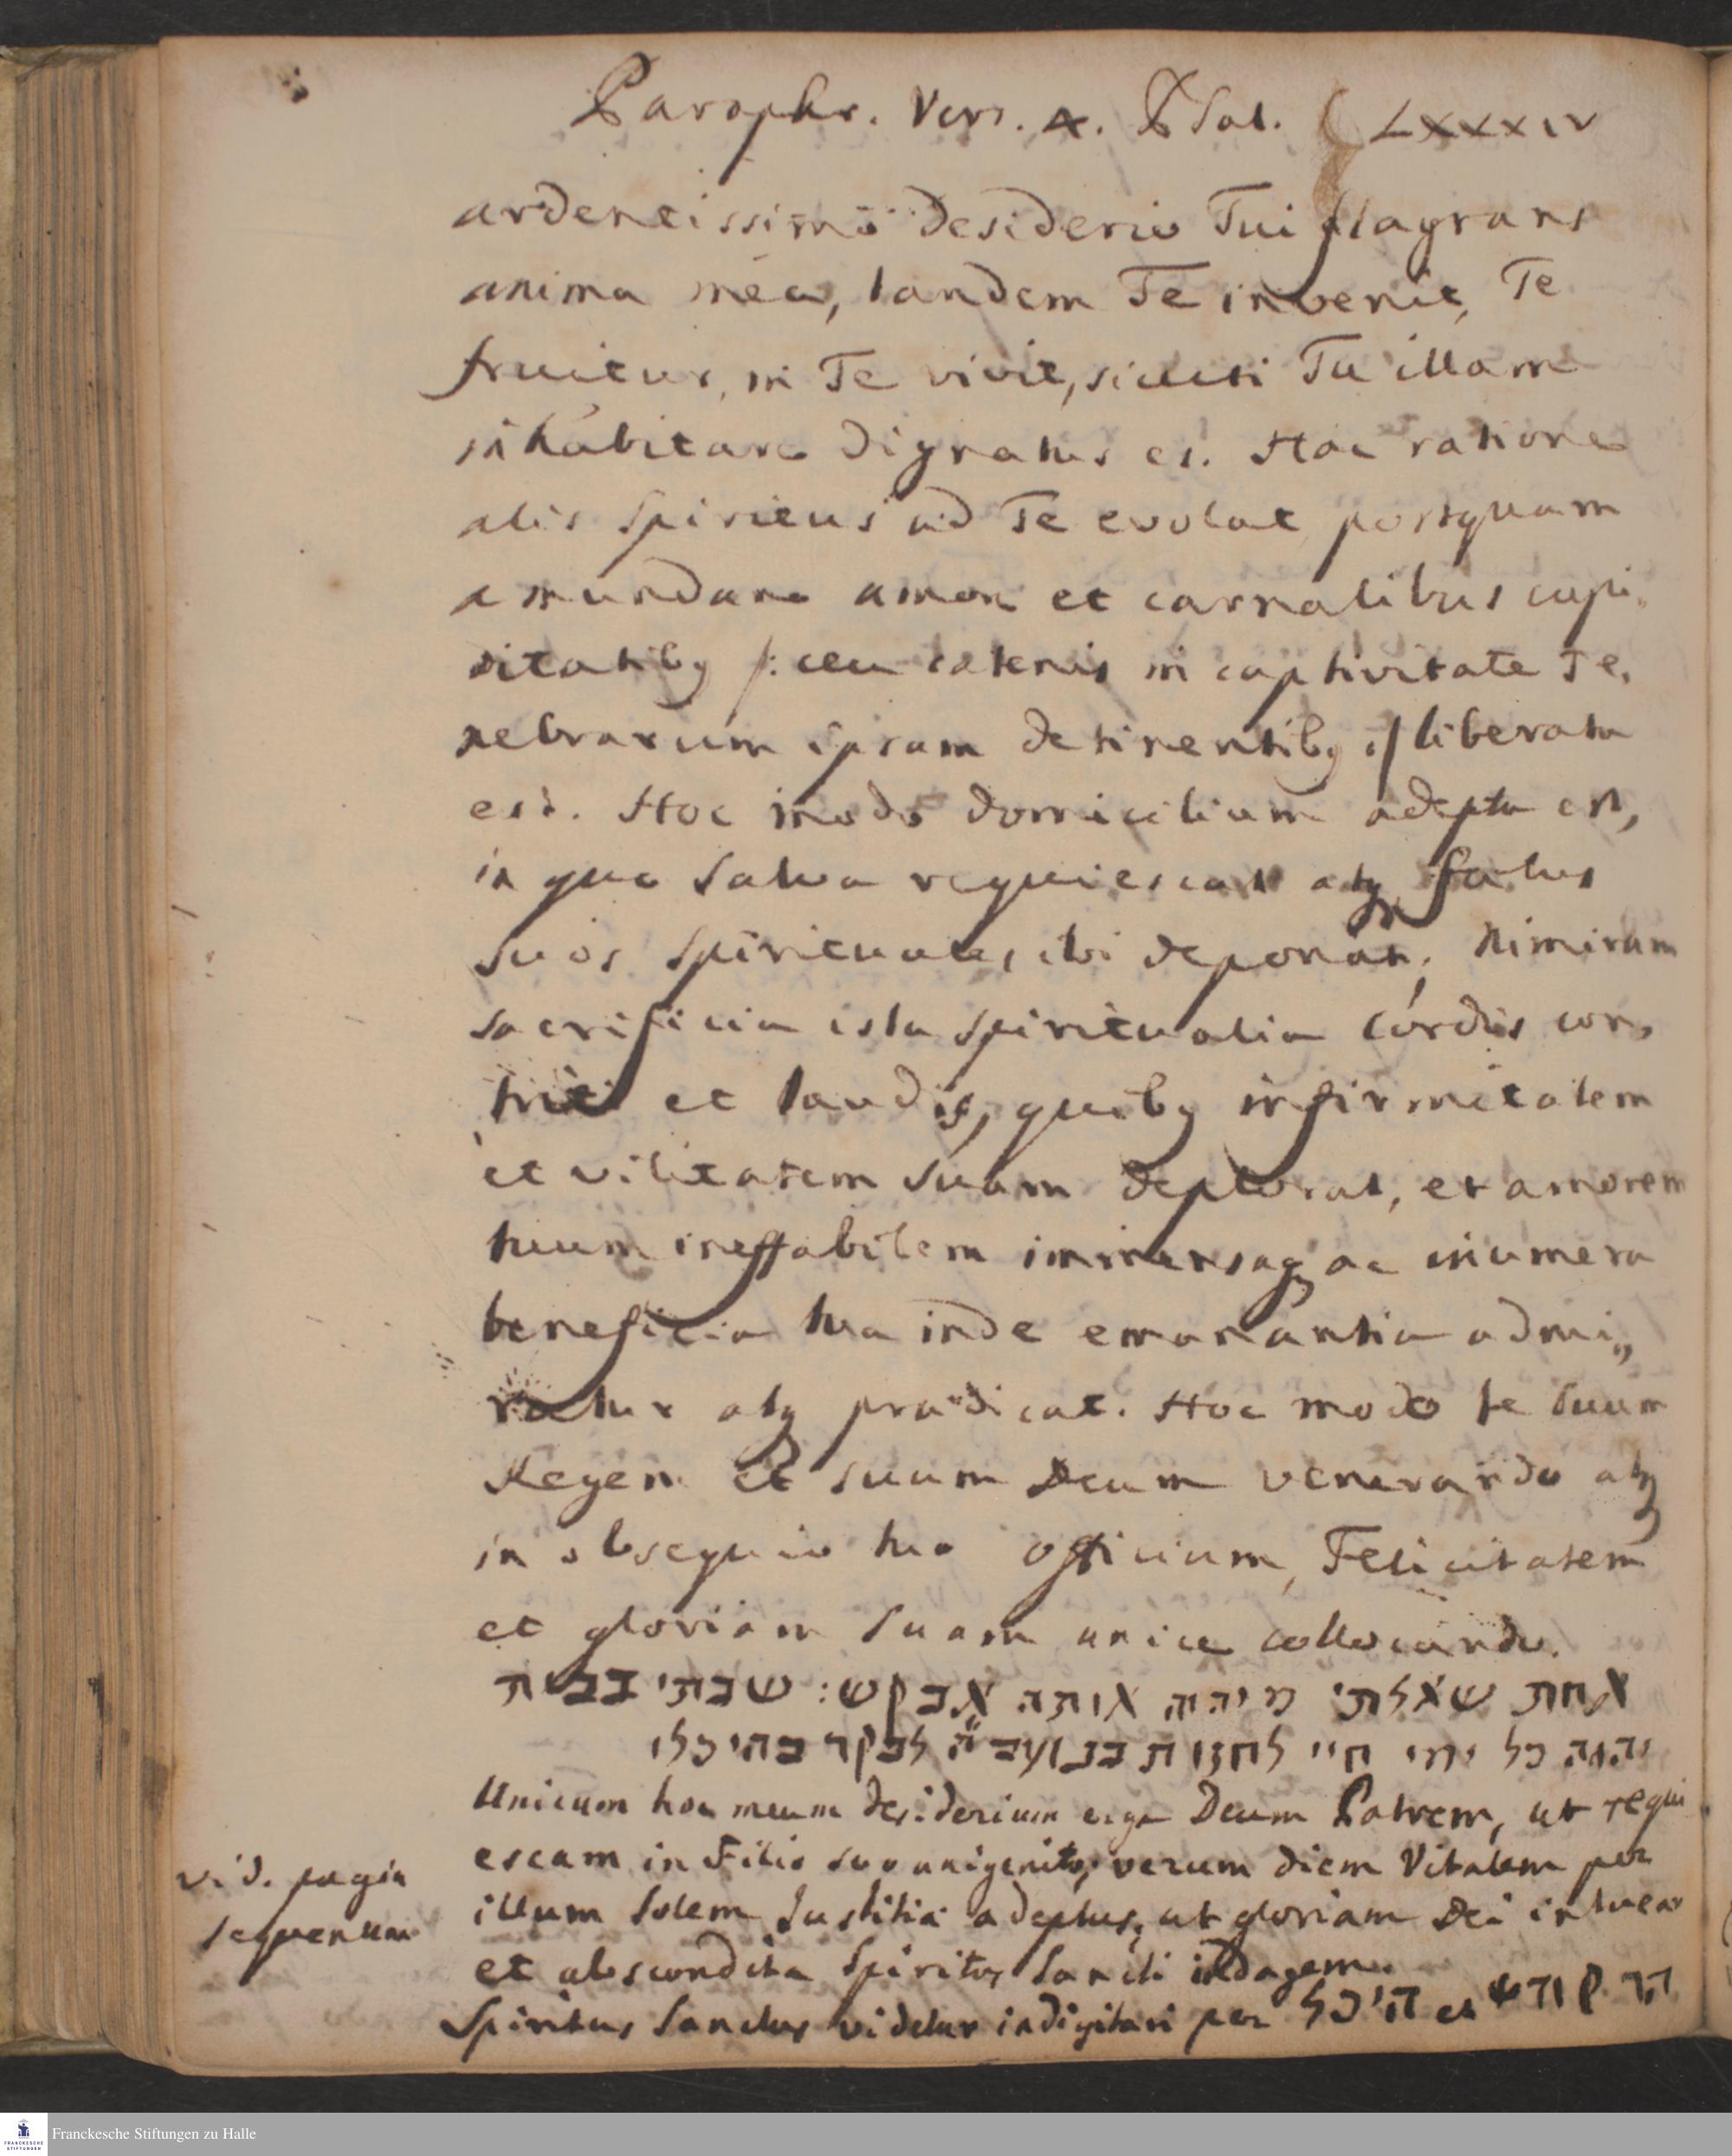 Paraphr. Vers. 4. Psal. LXXXIV
ardentissimo desiderio Tui flagrans
anima mea, tandem Te invenit, Te
fruitur, in Te vivit, sicuti Tu illam
inhabitare dignatus es. Hac ratione
alis spiritus ad Te evolat postquam
a mundano amore et carnalibus cupi„
ditatibq /: ceu catenis in captivitate Te„
nebrarum ipsam detinentibq :/ liberata
est. Hoc modo domicilium adepta est,
in quo salva requiescat atq fœtus
suos spirituales ibi deponat; nimirum
sacrificia ista spiritualia cordis con„
triti et laudis, quibq infirmitatem
et vilitatem suam deplorat, et amorem
tuum ineffabilem immensaq ac inumera
beneficia tua inde emanantia admi„
ratur atq prædicat. Hoc modo te suum
Regem et suum Deum venerando atq
in obsequio tuo officium, Felicitatem
et gloriam suam unice collocando.
אחת שאלתי מיהוה אותה אבקש: שבתי בבית
יהוה כל ימי חיי לחזות בנועם י״ה לבקר בהיכלו
Unicum hoc meum desiderium erga Deum Patrem, ut requi
escam in Filio suo unigenito, verum diem Vitalem per
illum Solem Justitiæ adeptus, ut gloriam Dei intuear
et abscondita Spiritus Sancti indagem.
Spiritus Sanctus videtur indigitari per היכל et הר קודש
vid. pagin
sequentem
Franckesche Stiftungen zu Halle
FRANCKESCHE
STIFTUNGEN